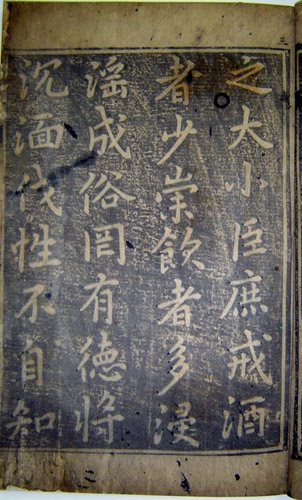 之大小臣庶戒酒
者少崇飲者多浸
滛成俗罔有德將
沉湎伐性不自知